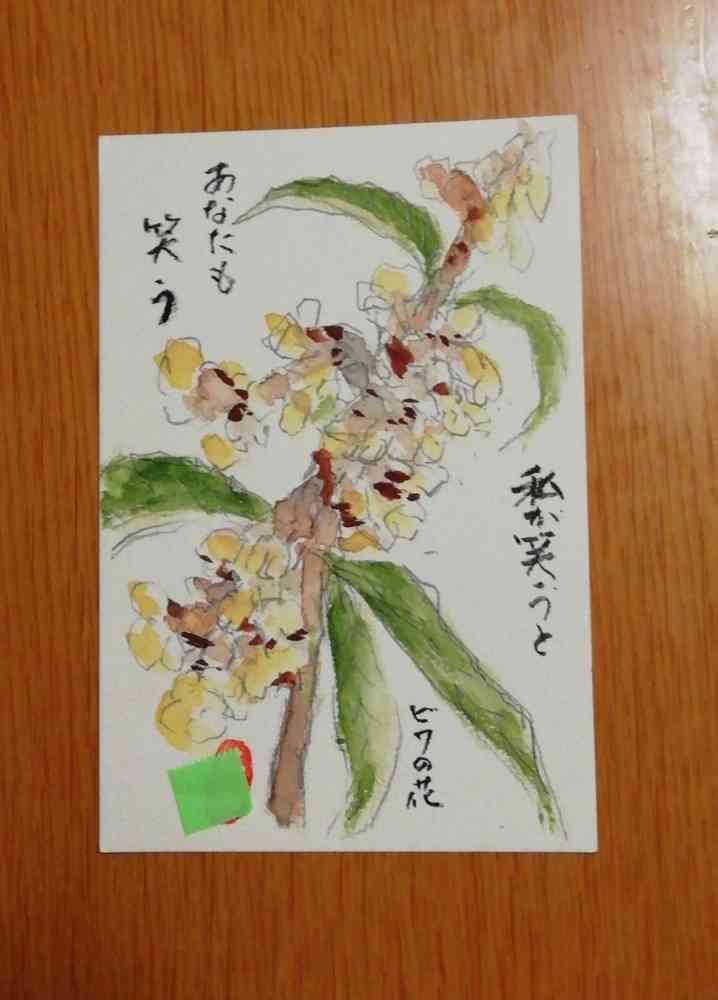 私が笑うと
あなたも
笑う
ビワの花